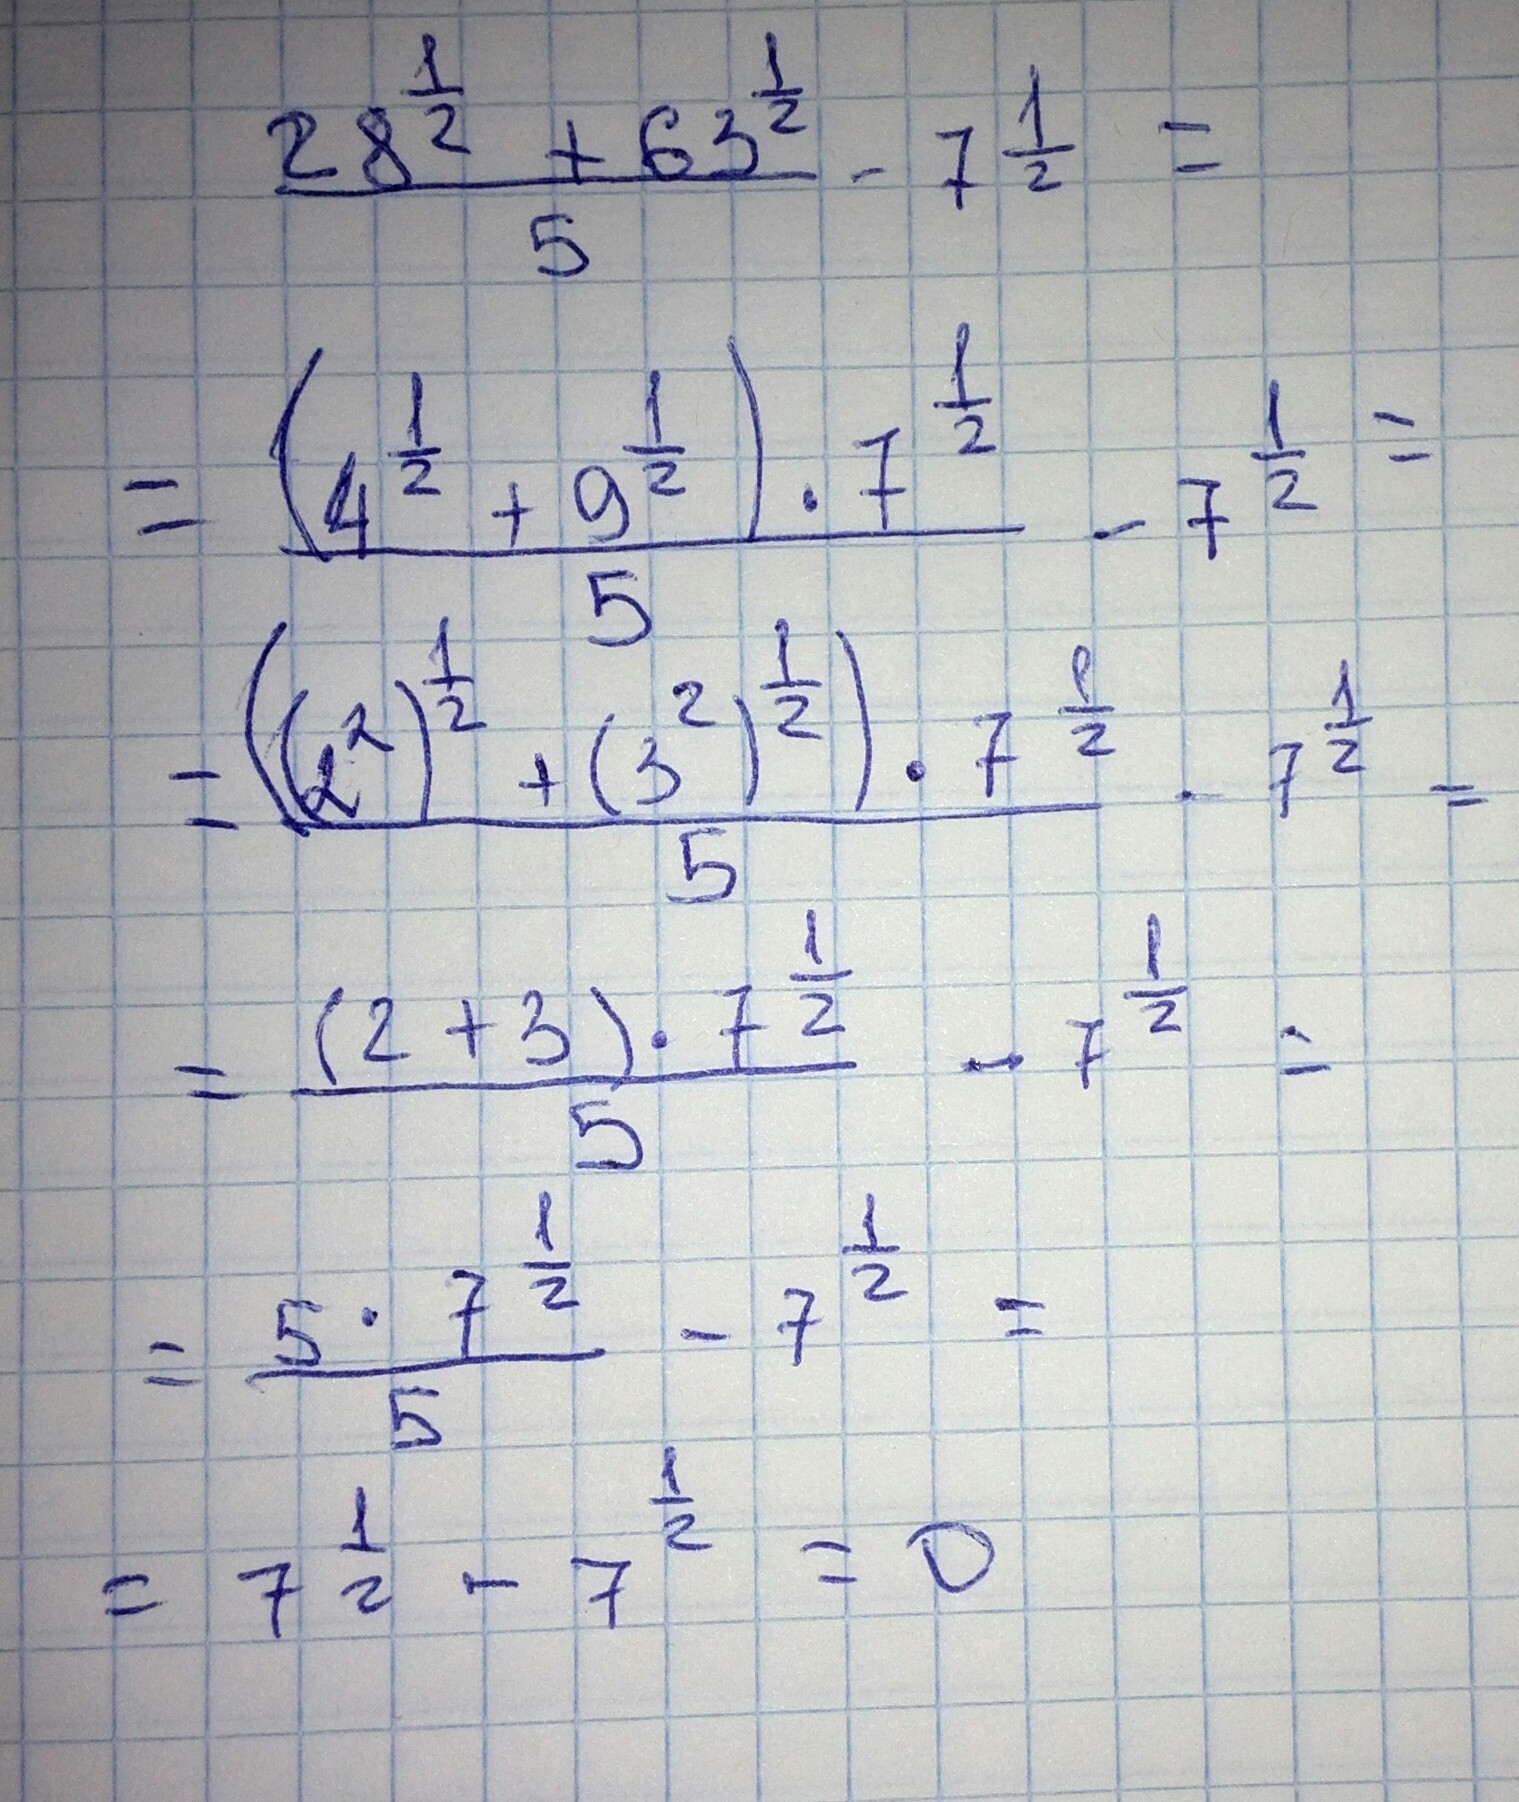 \frac{28^{\frac{1}{2}} + 63^{\frac{1}{2}}}{5} - 7^{\frac{1}{2}} =
= \frac{(4^{\frac{1}{2}} + 9^{\frac{1}{2}}) \cdot 7^{\frac{1}{2}}}{5} - 7^{\frac{1}{2}} =
= \frac{((2^2)^{\frac{1}{2}} + (3^2)^{\frac{1}{2}}) \cdot 7^{\frac{1}{2}}}{5} - 7^{\frac{1}{2}} =
= \frac{(2 + 3) \cdot 7^{\frac{1}{2}}}{5} - 7^{\frac{1}{2}} =
= \frac{5 \cdot 7^{\frac{1}{2}}}{5} - 7^{\frac{1}{2}} =
= 7^{\frac{1}{2}} - 7^{\frac{1}{2}} = 0